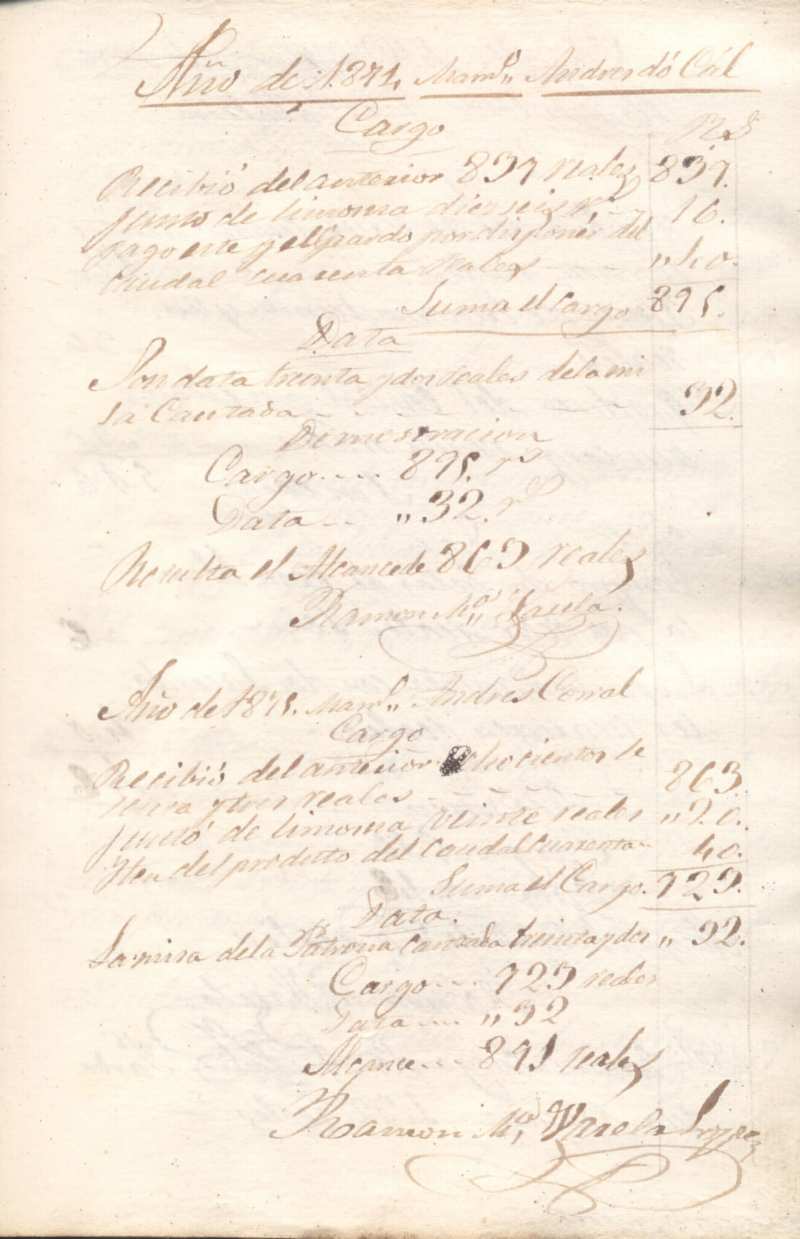 Año de 1874. Mam.º Andres dó Cál
Cargo
R.s
Recibió del anterior 839 reales 839.
junto de limosna diez seis r.s 16.
pago este y el Guardo por disponer del
caudal cuarenta reales " 40.
Suma el Cargo 895.
Data
Son data treinta y dos reales de la mi
sa Cantada 32.
Demostracion
Cargo 895. r.s
Data " 32. r.s
Resulta el Alcance de 863 reales
Ramon M.ª Varela.
Año de 1875. Mam.º Andres Corral
Cargo
Recibió del anterior ochocientos se
senta y tres reales 863.
Juntó de limosna veinte reales " 20.
Iten del produtto del Caudal cuarenta 40.
Suma el Cargo. 923.
Data.
La misa de la Patrona Cantada treinta y dos " 32.
Cargo 923 reales
Data " 32
Alcance 891 reales
Ramon M.ª Varela Lopez